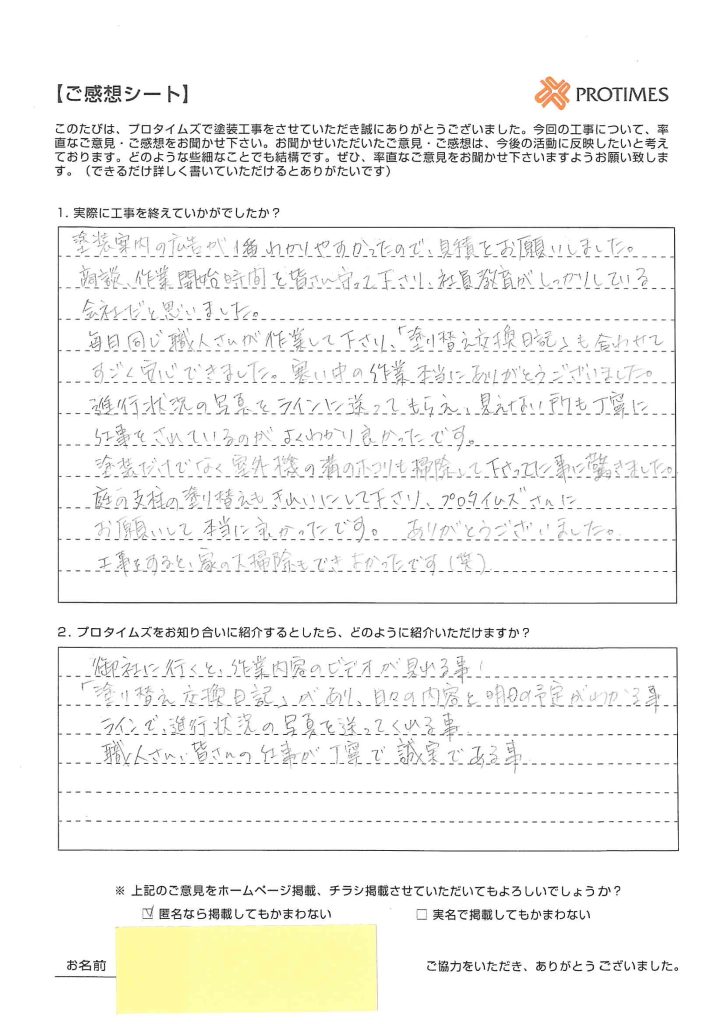 【ご感想シート】
PROTIMES
このたびは、プロタイムズで塗装工事をさせていただき誠にありがとうございました。今回の工事について、率
直なご意見・ご感想をお聞かせ下さい。お聞かせいただいたご意見・ご感想は、今後の活動に反映したいと考え
ております。どのような些細なことでも結構です。ぜひ、率直なご意見をお聞かせ下さいますようお願い致しま
す。（できるだけ詳しく書いていただけるとありがたいです）
1. 実際に工事を終えていかがでしたか？
塗装案内の広告が1番わかりやすかったので、見積をお願いしました。
商談、作業開始時間を皆さん守って下さり、社員教育がしっかりしている
会社だと思いました。
毎日同じ職人さんが作業して下さり、「塗り替え交換日記」も合わせて
すごく安心できました。寒い中の作業本当にありがとうございました。
進行状況の写真をラインに送ってもらえ、見えない所も丁寧に
仕事をされているのがよくわかり良かったです。
塗装だけでなく室外機の溝のホコリも掃除して下さってた事に驚きました。
庭の支柱の塗り替えもきれいにして下さり、プロタイムズさんに
お願いして本当に良かったです。ありがとうございました。
工事をすると、家の大掃除もできよかったです（笑）
2. プロタイムズをお知り合いに紹介するとしたら、どのように紹介いただけますか？
御社に行くと、作業内容のビデオが見れる事！
「塗り替え交換日記」があり、日々の内容と明日の予定がわかる事
ラインで、進行状況の写真を送ってくれる事
職人さん、皆さんの仕事が丁寧で誠実である事
※ 上記のご意見をホームページ掲載、チラシ掲載させていただいてもよろしいでしょうか？
☑ 匿名なら掲載してもかまわない □ 実名で掲載してもかまわない
お名前 ご協力をいただき、ありがとうございました。